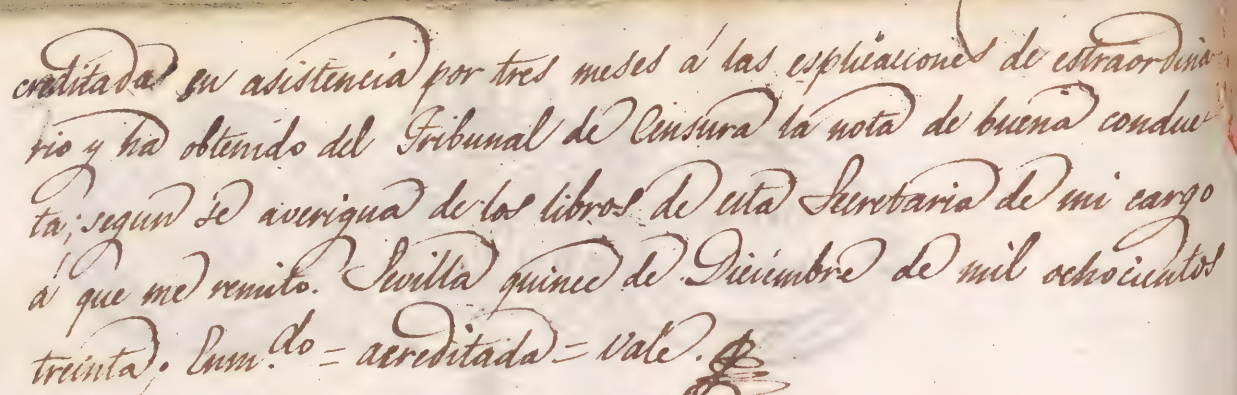 creditada su asistencia por tres meses á las esplicaciones de estraordina
rio y ha obtenido del Tribunal de Censura la nota de buena conduc
ta; segun se averigua de los libros de esta Secretaria de mi cargo
á que me remito. Sevilla quince de Diciembre de mil ochocientos
treinta. Enm.do = acreditada = Vale.